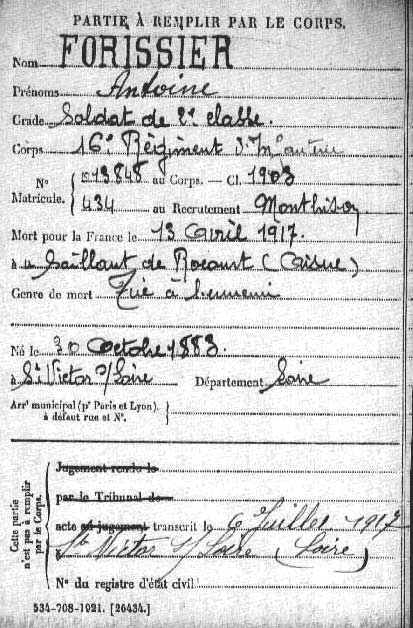 PARTIE À REMPLIR PAR LE CORPS.
Nom FORISSIER
Prénoms Antoine
Grade Soldat de 2e classe.
Corps 16e Régiment d'Infanterie
N° Matricule. { 013848 au Corps. — Cl. 1903
434 au Recrutement Montbrison
Mort pour la France le 13 Avril 1917.
à Saillant de Rocourt (Aisne)
Genre de mort Tué à l'ennemi
Né le 30 Octobre 1883.
à St Victor s/Loire Département Loire
Arr' municipal (p' Paris et Lyon), à défaut rue et N°. }
Cette partie n'est pas à remplir par le Corps. {
Jugement rendu le
par le Tribunal de
acte ou jugement transcrit le 6 Juillet 1917
St Victor s/Loire (Loire)
N° du registre d'état civil
534-708-1921. [26434.]